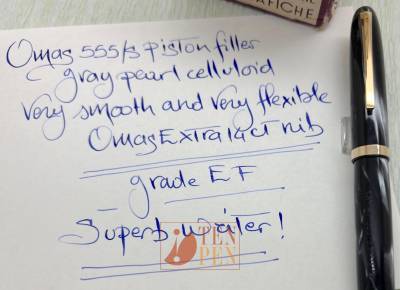 AFICHE
Omas 555/s piston filler
gray pearl celluloid
Very smooth and very flexible
Omas Extra 14ct nib
grade EF
Superb writer!
TEN
PEN